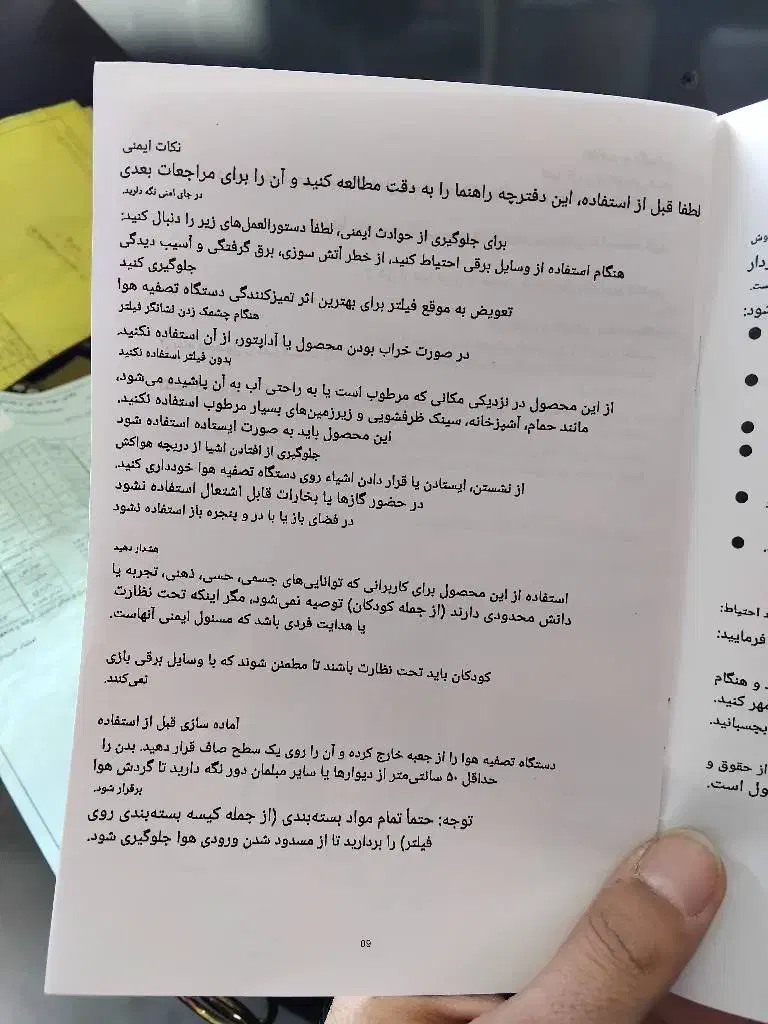 نکات ایمنی
لطفا قبل از استفاده، این دفترچه راهنما را به دقت مطالعه کنید و آن را برای مراجعات بعدی
در جای امنی نگه دارید.
برای جلوگیری از حوادث ایمنی، لطفاً دستورالعمل‌های زیر را دنبال کنید:
هنگام استفاده از وسایل برقی احتیاط کنید، از خطر آتش سوزی، برق گرفتگی و آسیب دیدگی
جلوگیری کنید
تعویض به موقع فیلتر برای بهترین اثر تمیزکنندگی دستگاه تصفیه هوا
هنگام چشمک زدن نشانگر فیلتر
در صورت خراب بودن محصول یا آداپتور، از آن استفاده نکنید.
بدون فیلتر استفاده نکنید
از این محصول در نزدیکی مکانی که مرطوب است یا به راحتی آب به آن پاشیده می‌شود،
مانند حمام، آشپزخانه، سینک ظرفشویی و زیرزمین‌های بسیار مرطوب استفاده نکنید.
این محصول باید به صورت ایستاده استفاده شود
جلوگیری از افتادن اشیا از دریچه هواکش
از نشستن، ایستادن یا قرار دادن اشیاء روی دستگاه تصفیه هوا خودداری کنید.
در حضور گازها یا بخارات قابل اشتعال استفاده نشود
در فضای باز یا با در و پنجره باز استفاده نشود
هشدار دهید
استفاده از این محصول برای کاربرانی که توانایی‌های جسمی، حسی، ذهنی، تجربه یا
دانش محدودی دارند (از جمله کودکان) توصیه نمی‌شود، مگر اینکه تحت نظارت
یا هدایت فردی باشد که مسئول ایمنی آنهاست.
کودکان باید تحت نظارت باشند تا مطمئن شوند که با وسایل برقی بازی
نمی‌کنند.
آماده سازی قبل از استفاده
دستگاه تصفیه هوا را از جعبه خارج کرده و آن را روی یک سطح صاف قرار دهید. بدن را
حداقل ۵۰ سانتی‌متر از دیوارها یا سایر مبلمان دور نگه دارید تا گردش هوا
برقرار شود.
توجه: حتماً تمام مواد بسته‌بندی (از جمله کیسه بسته‌بندی روی
فیلتر) را بردارید تا از مسدود شدن ورودی هوا جلوگیری شود.
09
احتیاط:
فرمایید:
و هنگام
مهر کنید.
بچسبانید.
از حقوق و
است.